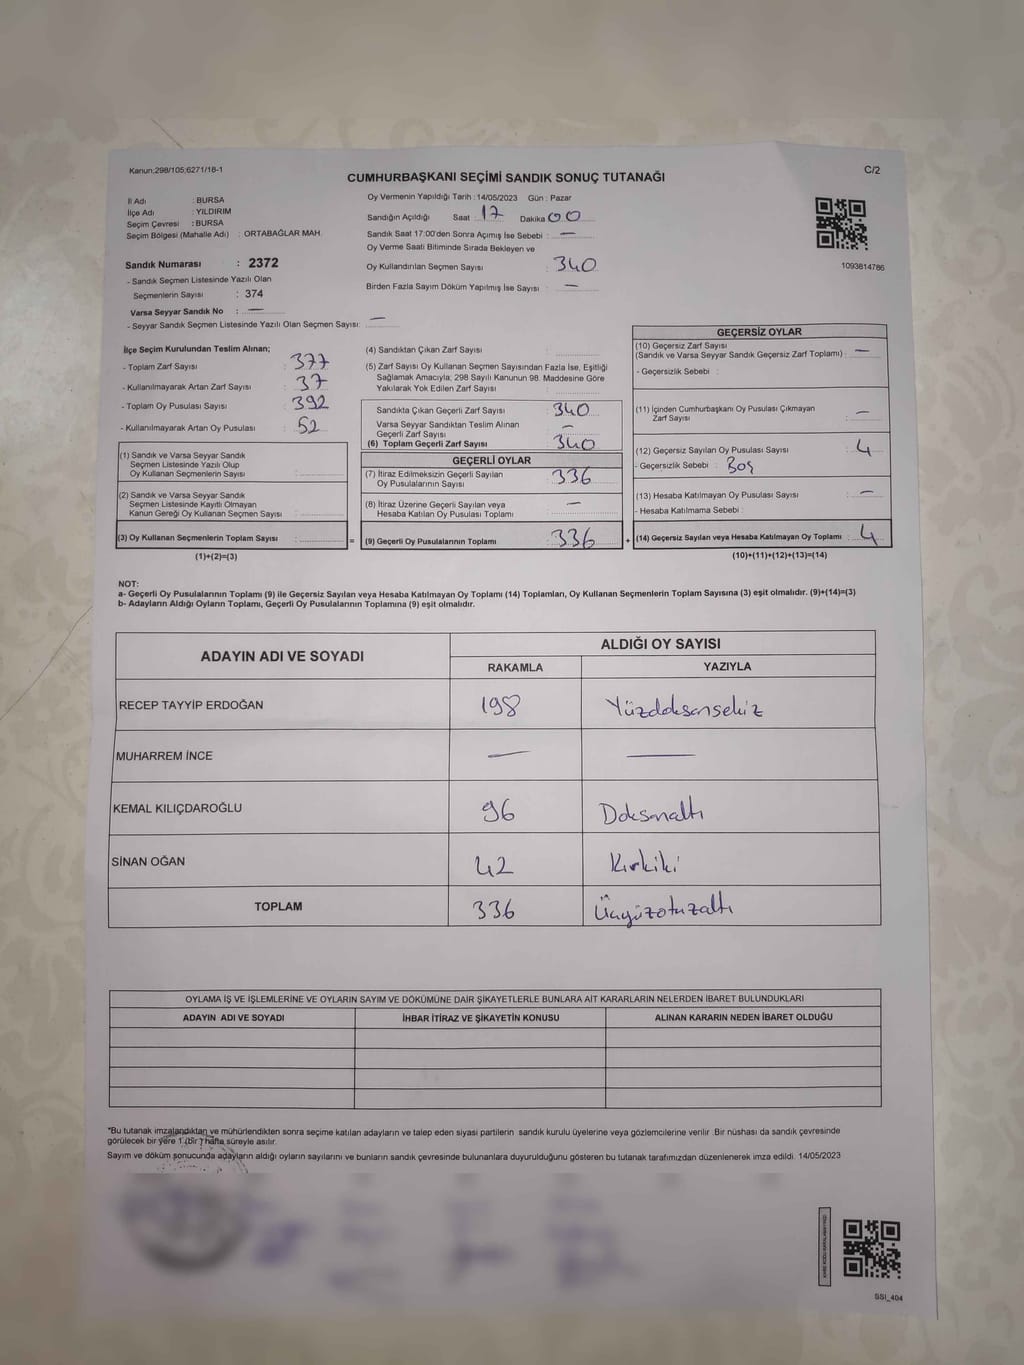 Kanun;298/105;6271/18-1
C/2
CUMHURBAŞKANI SEÇİMİ SANDIK SONUÇ TUTANAĞI
İl Adı : BURSA
İlçe Adı : YILDIRIM
Seçim Çevresi : BURSA
Seçim Bölgesi (Mahalle Adı) : ORTABAĞLAR MAH.
Sandık Numarası : 2372
- Sandık Seçmen Listesinde Yazılı Olan
Seçmenlerin Sayısı : 374
Varsa Seyyar Sandık No : —
- Seyyar Sandık Seçmen Listesinde Yazılı Olan Seçmen Sayısı: —
Oy Vermenin Yapıldığı Tarih : 14/05/2023 Gün : Pazar
Sandığın Açıldığı Saat : 17 Dakika 00
Sandık Saat 17:00'den Sonra Açılmış İse Sebebi : —
Oy Verme Saati Bitiminde Sırada Bekleyen ve
Oy Kullandırılan Seçmen Sayısı : 340
Birden Fazla Sayım Döküm Yapılmış İse Sayısı : —
1093814786
İlçe Seçim Kurulundan Teslim Alınan;
- Toplam Zarf Sayısı : 377
- Kullanılmayarak Artan Zarf Sayısı : 37
- Toplam Oy Pusulası Sayısı : 392
- Kullanılmayarak Artan Oy Pusulası : 52
(1) Sandık ve Varsa Seyyar Sandık
Seçmen Listesinde Yazılı Olup
Oy Kullanan Seçmenlerin Sayısı :
(2) Sandık ve Varsa Seyyar Sandık
Seçmen Listesinde Kayıtlı Olmayan
Kanun Gereği Oy Kullanan Seçmen Sayısı :
(3) Oy Kullanan Seçmenlerin Toplam Sayısı :
(1)+(2)=(3)
=
(4) Sandıktan Çıkan Zarf Sayısı :
(5) Zarf Sayısı Oy Kullanan Seçmen Sayısından Fazla İse, Eşitliği
Sağlamak Amacıyla; 298 Sayılı Kanunun 98. Maddesine Göre
Yakılarak Yok Edilen Zarf Sayısı :
Sandıkta Çıkan Geçerli Zarf Sayısı : 340
Varsa Seyyar Sandıktan Teslim Alınan
Geçerli Zarf Sayısı : —
(6) Toplam Geçerli Zarf Sayısı : 340
GEÇERLİ OYLAR
(7) İtiraz Edilmeksizin Geçerli Sayılan
Oy Pusulalarının Sayısı : 336
(8) İtiraz Üzerine Geçerli Sayılan veya
Hesaba Katılan Oy Pusulası Toplamı : —
(9) Geçerli Oy Pusulalarının Toplamı : 336
+
GEÇERSİZ OYLAR
(10) Geçersiz Zarf Sayısı
(Sandık ve Varsa Seyyar Sandık Geçersiz Zarf Toplamı) : —
- Geçersizlik Sebebi :
(11) İçinden Cumhurbaşkanı Oy Pusulası Çıkmayan
Zarf Sayısı : —
(12) Geçersiz Sayılan Oy Pusulası Sayısı : 4
- Geçersizlik Sebebi : Boş
(13) Hesaba Katılmayan Oy Pusulası Sayısı : —
- Hesaba Katılmama Sebebi :
(14) Geçersiz Sayılan veya Hesaba Katılmayan Oy Toplamı : 4
(10)+(11)+(12)+(13)=(14)
NOT:
a- Geçerli Oy Pusulalarının Toplamı (9) ile Geçersiz Sayılan veya Hesaba Katılmayan Oy Toplamı (14) Toplamları, Oy Kullanan Seçmenlerin Toplam Sayısına (3) eşit olmalıdır. (9)+(14)=(3)
b- Adayların Aldığı Oyların Toplamı, Geçerli Oy Pusulalarının Toplamına (9) eşit olmalıdır.
ADAYIN ADI VE SOYADI
ALDIĞI OY SAYISI
RAKAMLA YAZIYLA
RECEP TAYYİP ERDOĞAN 198 Yüzdoksansekiz
MUHARREM İNCE — —
KEMAL KILIÇDAROĞLU 96 Doksanaltı
SİNAN OĞAN 42 Kırkiki
TOPLAM 336 Üçyüzotuzaltı
OYLAMA İŞ VE İŞLEMLERİNE VE OYLARIN SAYIM VE DÖKÜMÜNE DAİR ŞİKAYETLERLE BUNLARA AİT KARARLARIN NELERDEN İBARET BULUNDUKLARI
ADAYIN ADI VE SOYADI İHBAR İTİRAZ VE ŞİKAYETİN KONUSU ALINAN KARARIN NEDEN İBARET OLDUĞU
*Bu tutanak imzalandıktan ve mühürlendikten sonra seçime katılan adayların ve talep eden siyasi partilerin sandık kurulu üyelerine veya gözlemcilerine verilir .Bir nüshası da sandık çevresinde
görülecek bir yere 1 (bir ) hafta süreyle asılır.
Sayım ve döküm sonucunda adayların aldığı oyların sayılarını ve bunların sandık çevresinde bulunanlara duyurulduğunu gösteren bu tutanak tarafımızdan düzenlenerek imza edildi. 14/05/2023
SSI_404